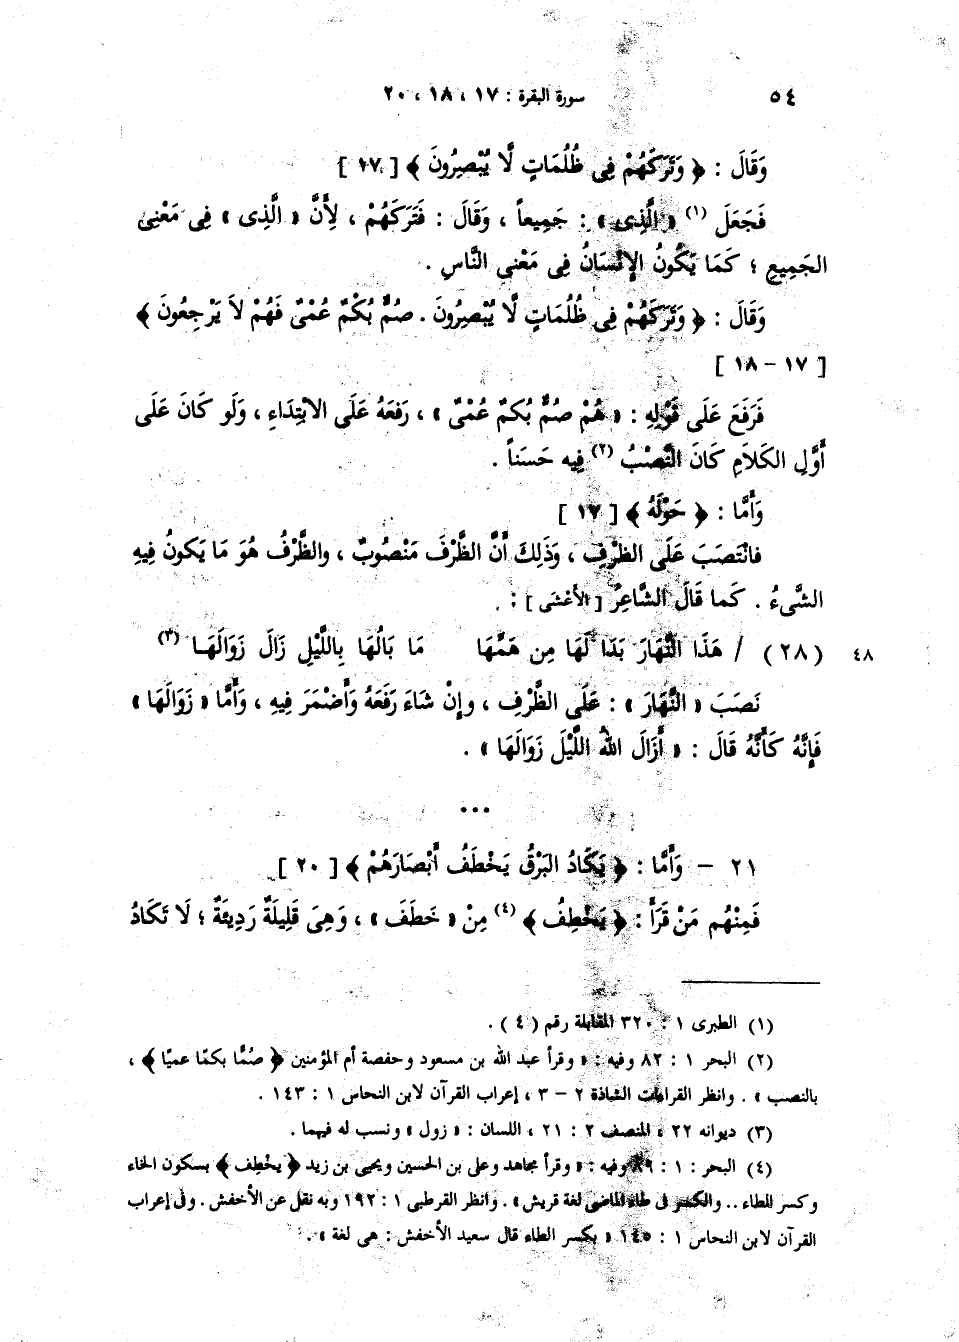 ٥٤ سورة البقرة : ١٧ ، ١٨ ، ٢٠
وَقَالَ : ﴿ وَتَرَكَهُمْ فِى ظُلُمَاتٍ لَّا يُبْصِرُونَ ﴾ [ ١٧ ]
فَجَعَلَ (١) « الَّذِى » : جَمِيعاً ، وَقَالَ : فَتَرَكَهُمْ ، لِأَنَّ « الَّذِى » فِى مَعْنِى
الجَمِيعِ ؛ كَمَا يَكُونُ الإِنْسَانُ فِى مَعْنى النَّاسِ .
وَقَالَ : ﴿ وَتَرَكَهُمْ فِى ظُلُمَاتٍ لَّا يُبْصِرُونَ . صُمٌّ بُكْمٌ عُمْىٌ فَهُمْ لاَ يَرْجِعُونَ ﴾
[ ١٧ - ١٨ ]
فَرَفَعَ عَلَى قَوْلِهِ : « هُمْ صُمٌّ بُكمٌ عُمْىٌ » ، رَفعَهُ عَلَى الابْتِدَاءِ ، وَلَو كَانَ عَلَى
أَوَّلِ الكَلاَمِ كَانَ النَّصْبُ (٢) فِيه حَسَناً .
وَأَمَّا : ﴿ حَوْلَهُ ﴾ [ ١٧ ]
فانْتَصَبَ عَلَى الظرْفِ ، وَذَلِكَ أَنَّ الظَّرْفَ مَنْصُوبٌ ، والظَّرْفُ هُوَ مَا يَكونُ فِيهِ
الشَّىءُ . كَما قَالَ الشَّاعِرُ [ الأعْشى ] :
٤٨ (٢٨) / هَذَا النَّهَارَ بَدَا لَهَا مِن هَمِّهَا مَا بَالُهَا بِاللَّيْلِ زَالَ زَوَالَهَـا (٣)
نَصَبَ « النَّهَارَ » : عَلَى الظَّرْفِ ، وإنْ شَاءَ رَفَعَهُ وَأضْمَرَ فِيهِ ، وَأَمَّا « زَوَالَهَا »
فَإِنَّهُ كَأَنَّهُ قَالَ : « أَزَالَ اللهُ اللَّيْلَ زَوَالَهَا » .
...
٢١ - وَأَمَّا : ﴿ يَكَادُ البَرْقُ يَخْطَفُ أَبْصَارَهُمْ ﴾ [ ٢٠ ]
فَمِنْهُم مَنْ قَرَأَ : ﴿ يَخْطِفُ ﴾ (٤) مِنْ « خَطَفَ » ، وَهِىَ قَلِيلَةٌ رَدِيئَةٌ ؛ لَا تَكَادُ
(١) الطبرى ١ : ٣٢٠ المقابلة رقم ( ٤ ) .
(٢) البحر ١ : ٨٢ وفيه : « وقرأ عبد الله بن مسعود وحفصة أم المؤمنين ﴿ صُمًّا بكمًا عميًا ﴾ ،
بالنصب » . وانظر القراءات الشاذة ٢ - ٣ ، إعراب القرآن لابن النحاس ١ : ١٤٣ .
(٣) ديوانه ٢٢ ، المنصف ٢ : ٢١ ، اللسان : « زول » ونسب له فيهما .
(٤) البحر : ١ : ٨٩ وفيه : « وقرأ مجاهد وعلى بن الحسين ويحيى بن زيد ﴿ يخْطِف ﴾ بسكون الخاء
وكسر الطاء .. والكسر فى طاء الماضى لغة قريش » . وانظر القرطبى ١ : ١٩٢ وبه نقل عن الأخفش . وفى إعراب
القرآن لابن النحاس ١ : ١٤٥ « بكسر الطاء قال سعيد الأخفش : هى لغة » .